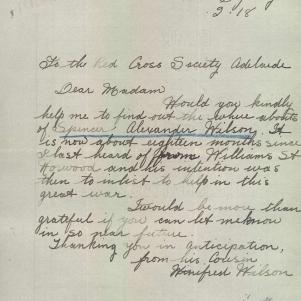 .2.18
To the Red Cross Society Adelaide
Dear Madam
Would you kindly
help me to find out the whereabouts
of Spencer Alexander Wilson. It
is now about eighteen months since
I last heard of from Williams St
Norwood and his intention was
then to inlist to help in this
great war.
I would be more than
grateful if you can let me know
in so near future.
Thanking you in anticipation,
from his Cousin
Winifred Wilson